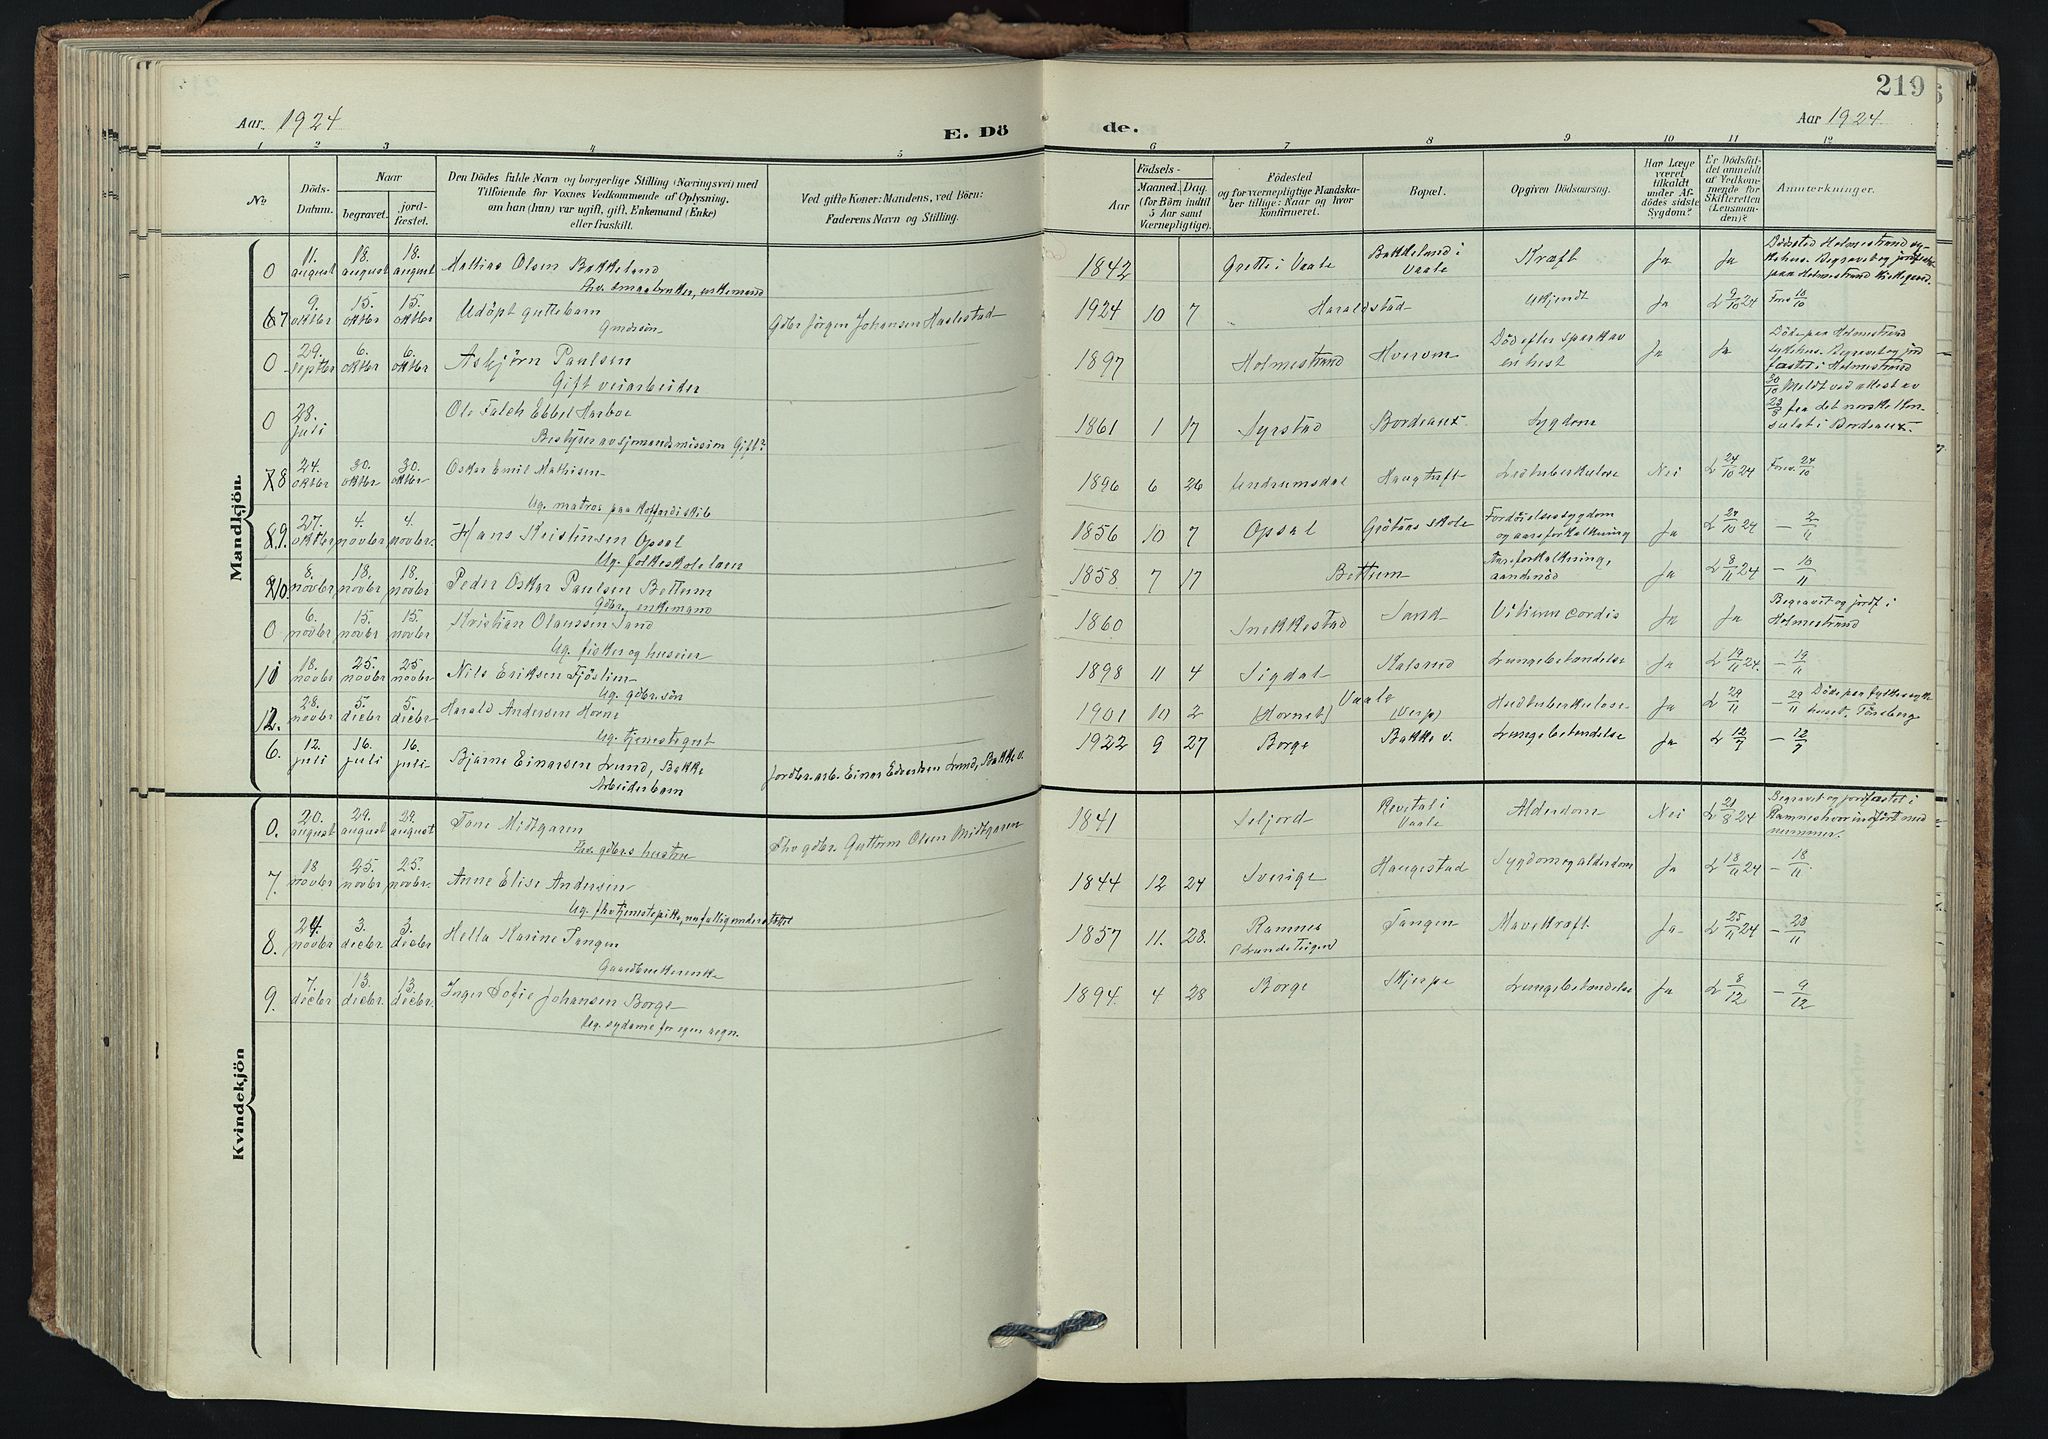 219
Aar. 1924
E. Dö
de.
Aar 1924
1 2 3 4 5 6 7 8 9 10 11 12
No.
Döds-Datum.
Naar
begravet.
jordfæstet.
Den Dödes fulde Navn og borgerlige Stilling (Næringsvei) med
Tilföiende for Voxnes Vedkommende af Oplysning,
om han (hun) var ugift, gift, Enkemand (Enke)
eller fraskilt.
Ved gifte Koner: Mandens, ved Börn:
Faderens Navn og Stilling.
Födsels-
Aar
Maaned. Dag.
(for Börn indtil
5 Aar samt
Værnepligtige).
Födested
og for værnepligtige Mandskaber tillige: Naar og hvor
konfirmeret.
Bopæl.
Opgiven Dödsaarsag.
Har Læge
været
tilkaldt
under Afdödes sidste
Sygdom?
Er Dödsfaldet anmeldt
af Vedkommende for
Skifteretten
(Lensmanden)?
Anmærkninger.
Mandkjön.
0 11. august 18. august 18. august Mathias Olsen Bakkeland 1842 Grette i Vaale Bakkeland i Vaale Kræft Ja Ja Dödsted Holmestrand sykehus. Begravet og jordfæstet paa Holmestrand Kirkegaard.
Fhv. smaabruker, enkemand
7 9. oktbr 15. oktbr 15. oktbr Udöpt guttebarn Gdbr Jörgen Johansen Haslestad 1924 10 7 Haraldstad Ukjendt Ja L 9/10 24
Gmdrsön
0 29. septbr 6. oktbr 6. oktbr Asbjörn Paulsen 1897 Holmestrand Död efter spark av en hest Ja Ja Döde paa Holmestrand sykehus. Begravet og jordfæstet i Holmestrand
Gift veiarbeider
0 28. juli Ole Falch Ebbel Harboe 1861 1 17 Syrstad Bordeaux Sygdom 30/10 Meldt ved attest av fra det norske Konsulat i Bordeaux.
Bestyrer av sjomandsmission Gift?
8 24. oktbr 30. oktbr 30. oktbr Oskar Emil Mathisen 1896 6 26 Undrumsdal Haugtuft Nei L 24/10 24 24/10
Ug. matros paa Koffardiskib
9. 27. oktbr 4. novbr 4. novbr. Hans Kristensen Opsal 1856 10 7 Opsal skole Fordöielsessygdom og aareforkalkning Ja 24 – 2/11
Ug. folkeskolelærer
10. 8. novbr 18. novbr 18. novbr Peder Oskar Paulsen Bettum 1858 7 17 Bettum Aareforkalkning, aandenöd Ja L 8/11 24 – 10/11
Gdbr, enkemand
0 6. novbr 15. novbr 15. novbr Kristian Olaussen Sand 1860 Snekkestad Sand Vitium cordis Ja Ja Begravet og jordf i Holmestrand
Ug. fisker og huseier
11 18. novbr 25. novbr 25 novbr Nils Eriksen Tjöslien 1898 11 4 Sigdal Lungebetændelse Ja L 19/11 24. – 19/11
Ug. gdbr.sön
12. 28. novbr 5. decbr 5. decbr. Harald Andersen Horne 1901 10 2 Vaale (Hornet) (Verp) Ja L 29/11 – 29/11 Döde paa fylkessykehuset, Tönsberg
Ug. tjenestegut
6. 12. juli 16. juli 16. juli. Bjarne Einarsen Lund, Bakke Jordbr. arb. Einar Edvardsen Lund, Bakke v. 1922 9 27 Borge Bakke v. Lungebetændelse Ja L 12/7 – 12/7
Arbeiderbarn
Kvindekjön
0. 20. august 29. august 29. august Tone Midtgaren Fhv gdbr. Guttorm Olsen Midtgaren 1841 Seljord Revetal i Vaale Alderdom Nei L 21/8 24 Begravet og jordfæstet i Ramnes hvor indfört med nummer.
Fhv. gdbr.s hustru
7. 18 novbr 25. novbr 25. novbr. Anne Elise Andersen 1844 12 24 Sverige Haugestad Sygdom og alderdom Ja L 18/11 24 – 18/11.
Ug. fhv tjenestepike,
8. 24. novbr 3. decbr 3. decbr Hella Karine Tangen 1857 11. 28. Ramnes Tangen Mavekræft Ja L 25/11 24
(Lundeteigen)
Gaardbrukerenke
9. 7. decbr 13. decbr. 13. decbr. Inger Sofie Johansen Borge 1894. 4 28 Borge Skjerpe Lungebetændelse Ja L 8/12 – 9/12
Ug. sydame for egen regn.